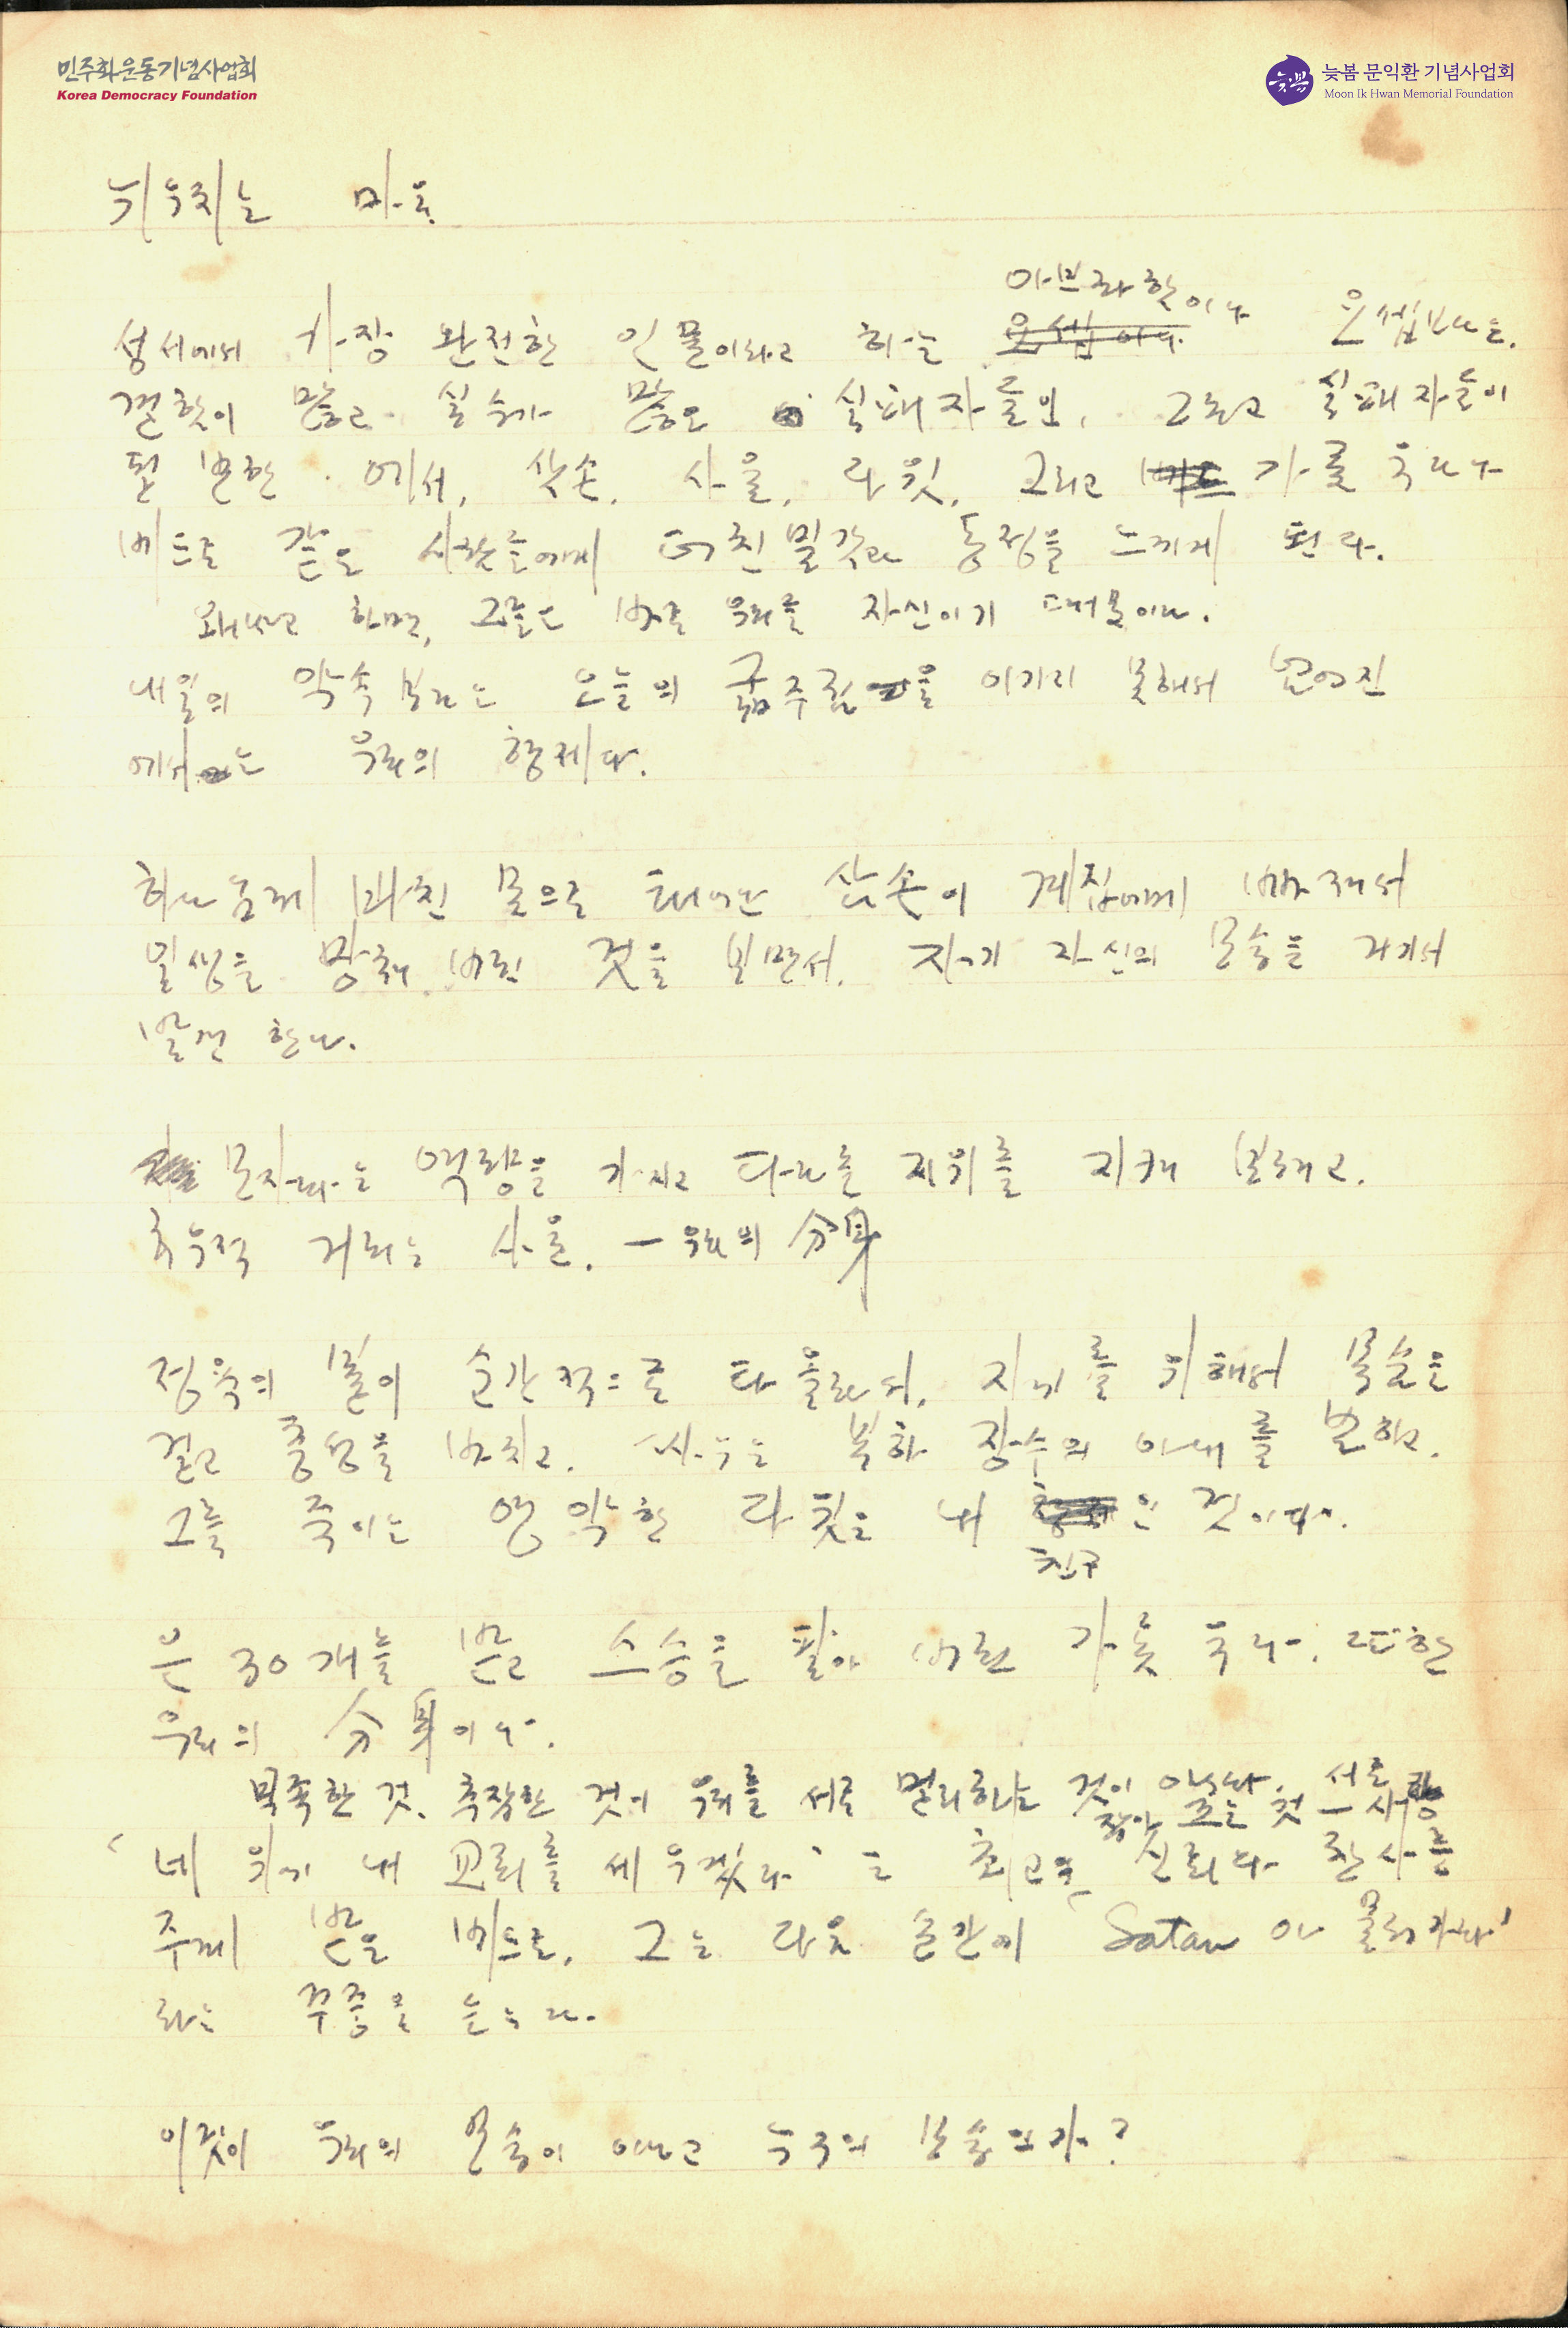 민주화운동기념사업회
Korea Democracy Foundation
늦봄 문익환 기념사업회
Moon Ik Hwan Memorial Foundation
뉘우치는 마음
아브라함이나
성서에서 가장 완전한 인물이라고 하는 요셉보다는,
결함이 많고 실수가 많은 실패자들인, 그리고 실패자들이
될 뻔한 에서, 삼손, 사울, 다윗, 그리고 가롯 유다나
베드로 같은 사람들에게 더 친밀감과 동정을 느끼게 된다.
왜냐고 하면, 그들은 바로 우리들 자신이기 때문이다.
내일의 약속보다는 오늘의 굶주림을 이기지 못해서 넘어진
에서는 우리의 형제다.
하나님께 바친 몸으로 태어난 삼손이 계집에게 빠져서
일생을 망쳐 버린 것을 보면서, 자기 자신의 모습을 거기서
발견 한다.
모자라는 역량을 가지고 다만 지위를 지켜 보려고,
허우적 거리는 사울. — 우리의 分身
정욕의 불이 순간적으로 타올라서, 자기를 위해서 목숨을
걸고 충성을 바치고, 싸우는 부하 장수의 아내를 범하고,
그를 죽이는 영악한 다윗은 내 인 것이다.
친구
은 30개를 받고 스승을 팔아 버린 가롯 유다, 또한
우리의 分身이다.
부족한 것, 추잡한 것이 우리를 서로 멀리하는 것이 아니다. 서로
찾아 오는 것 — 사랑
‘네 위에 내 교회를 세우겠다’는 최고의 신뢰와 찬사를
주께 받은 베드로, 그는 다음 순간에 ‘Satan아 물러가라’
라는 꾸중을 듣는다.
이것이 우리의 모습이 아니고 누구의 모습인가?